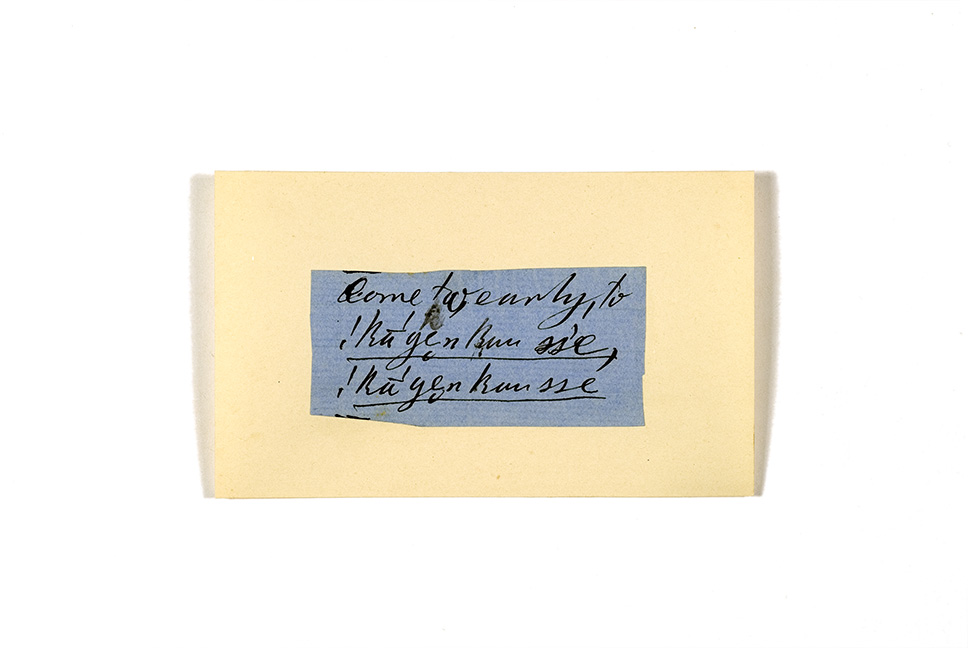 come wearily, to
!kũ'gen kau sse,
!kũ'gen kau sse